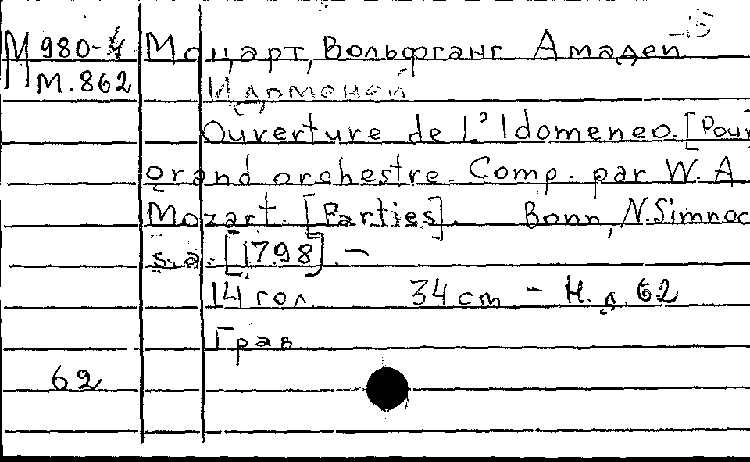 М 980-4 Моцарт, Вольфганг Амадей -15
М.862 Идоменей
Ouverture de L'Idomeneo. [Pour
grand orchestre. Comp. par W. A
Mozart. [Parties]. Bonn, N. Simroc
s. a. [1798]. —
14 гол 34 cm — Н. д. 62
Грав
62